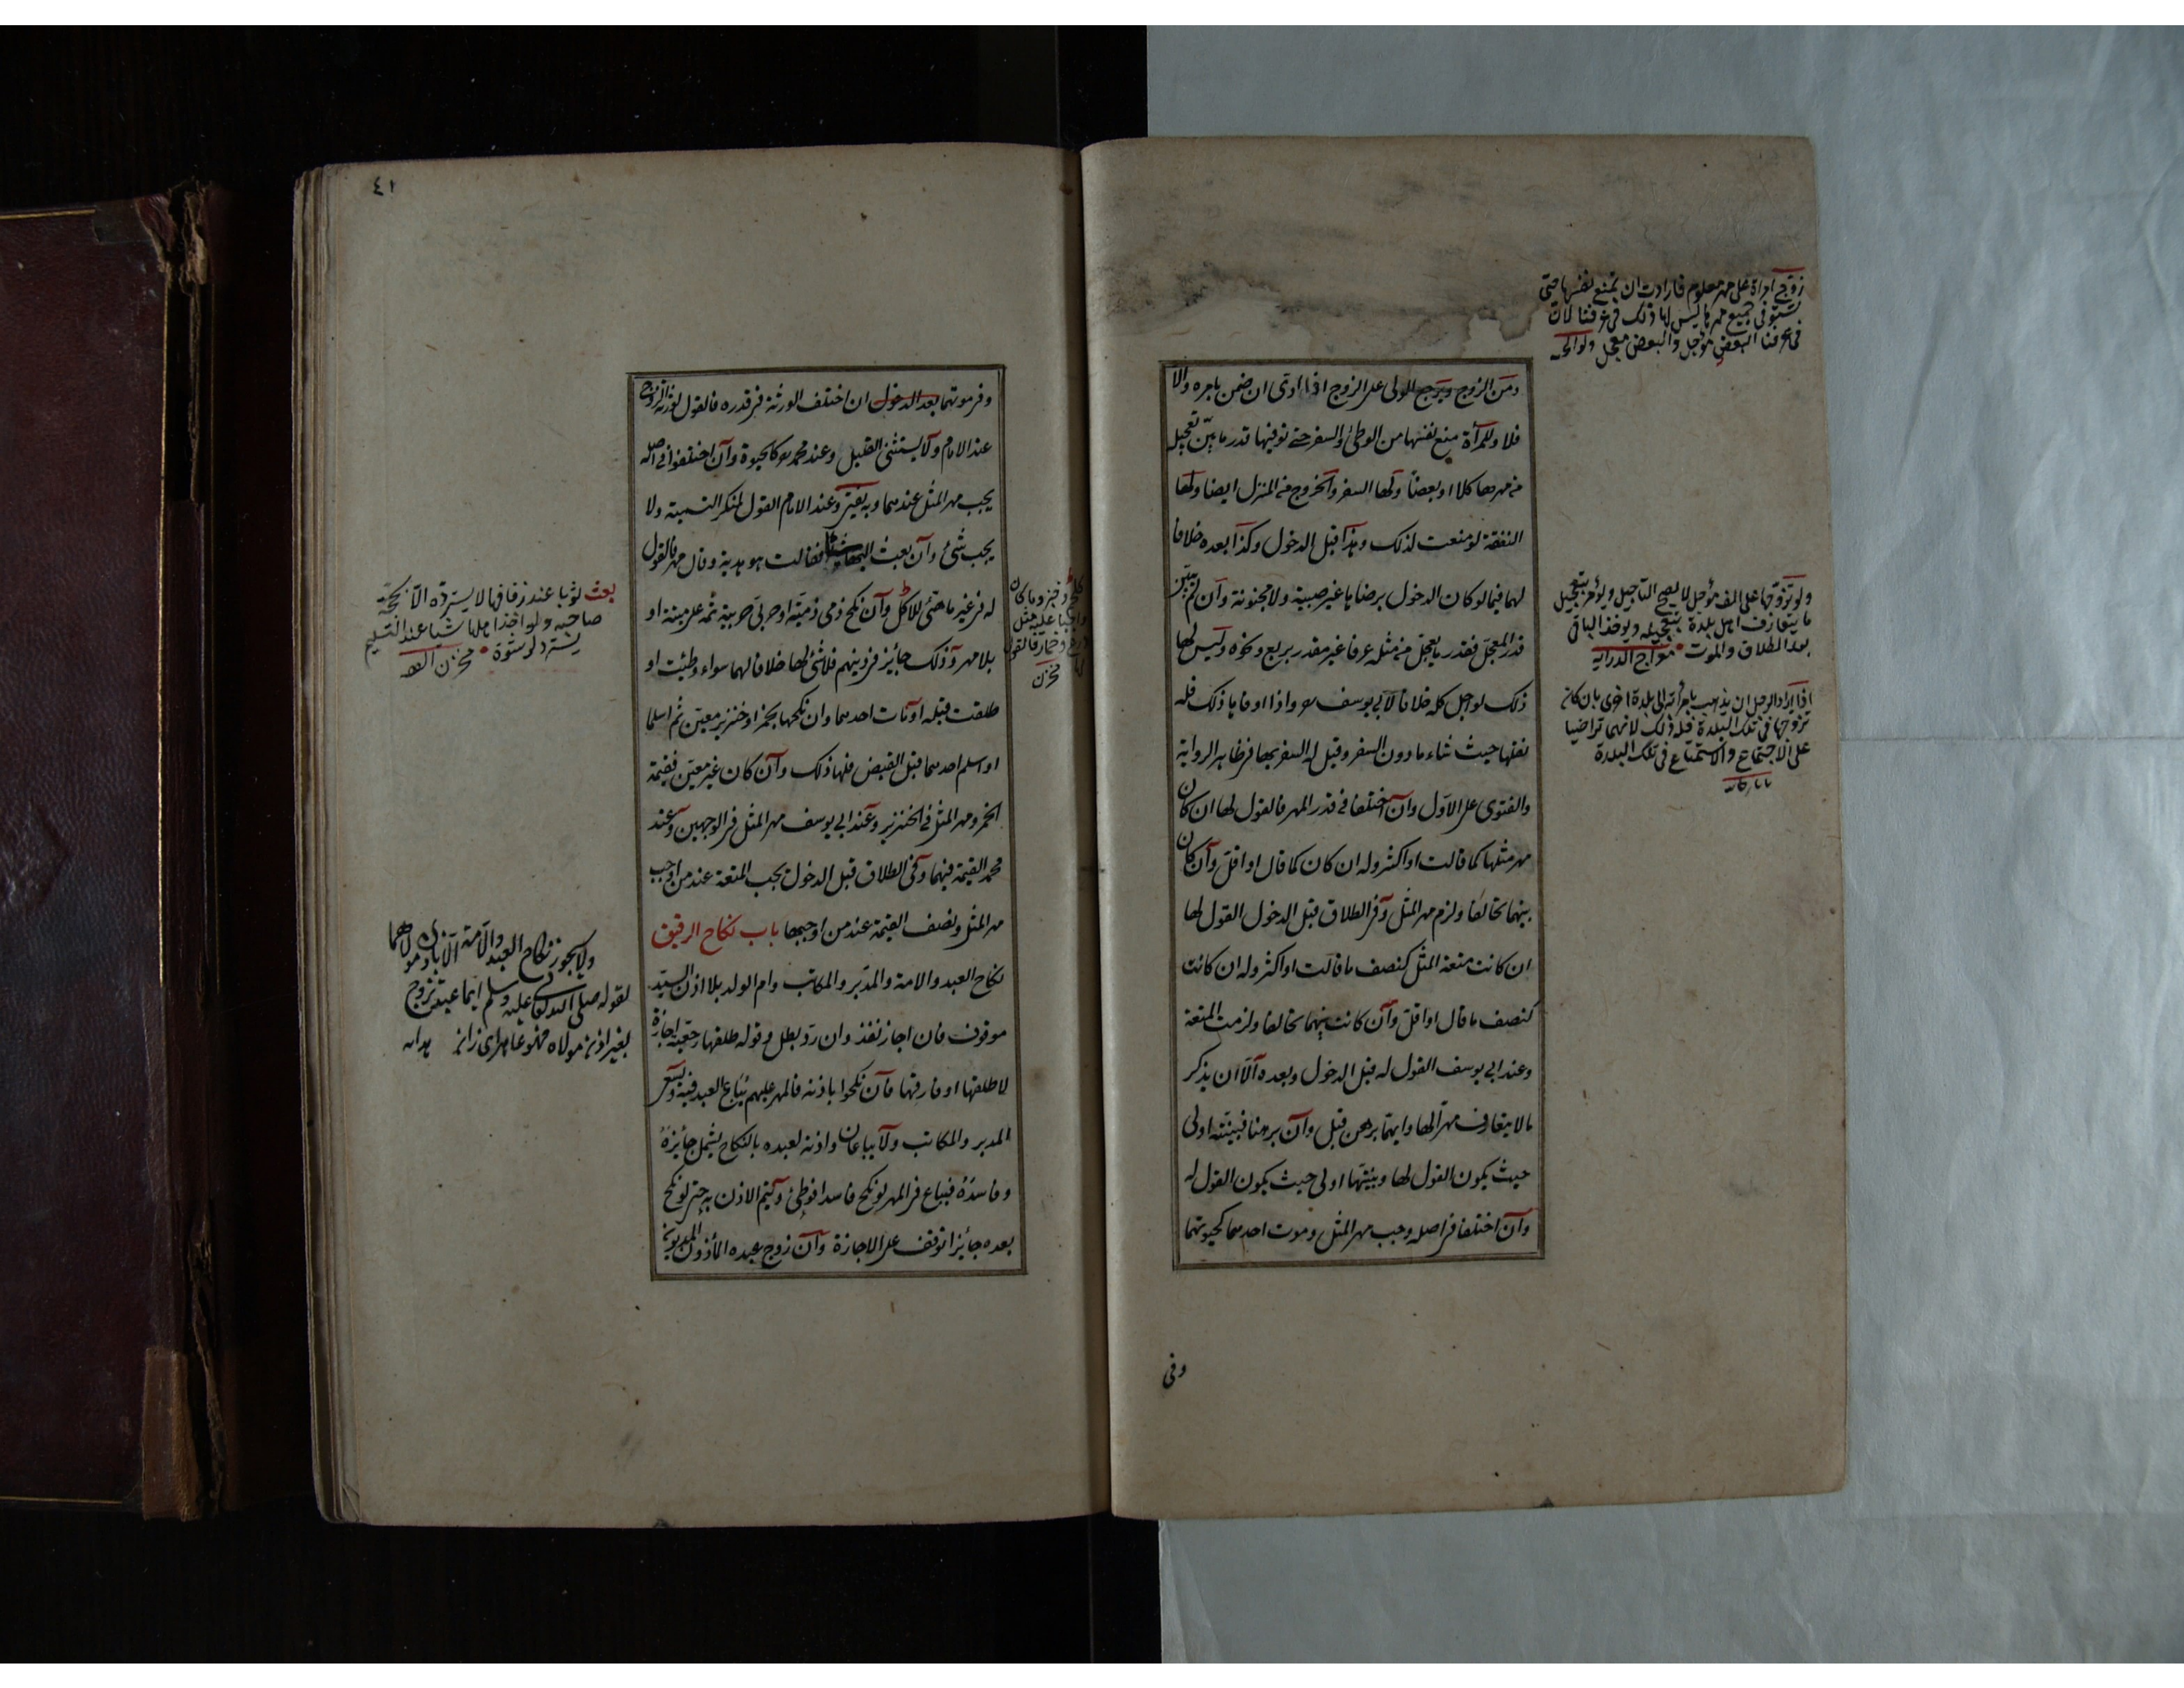 زوج امراة على مهر معلوم فارادت ان تمنع نفسها حتى
تستوفى جميع مهرها ليس لها ذلك فى عرفنا لان
فى عرفنا البعض مؤجل والبعض معجل
ومن الزوج ويرجع المولى على الزوج اذا ادى ان ضمن بامره والا
فلا وللمرأة منع نفسها من الوطئ والسفر حتى توفيها قدر ما بين تعجيله
من مهرها كلا او بعضا ولها السفر والخروج من المنزل ايضا ولها
النفقة لو منعت لذلك وهذا قبل الدخول وكذا بعده خلافا
لهما فيما لو كان الدخول برضاها غير صبية ولا مجنونة وان لم يبين
قدر المعجل فقدر ما يعجل من مثله عرفا غير مقدر بربع ونحوه وليس لها
ذلك لو اجل كله خلافا لابى يوسف واذا اوفاها ذلك فله
نقلها حيث شاء ما دون السفر وقيل له السفر بها فى ظاهر الرواية
والفتوى على الاول وان اختلفا فى قدر المهر فالقول لها ان كان
مهر مثلها كما قالت او اكثر وله ان كان كما قال او اقل وان كان
بينهما تحالفا ولزم مهر المثل وفى الطلاق قبل الدخول القول لها
ان كانت متعة المثل كنصف ما قالت او اكثر وله ان كانت
كنصف ما قال او اقل وان كانت بينهما تحالفا ولزمت المتعة
وعند ابى يوسف القول له قبل الدخول وبعده الا ان يذكر
ما لا يتعارف مهرا لها وايهما برهن قبل وان برهنا فبينته اولى
حيث يكون القول لها وبينتها اولى حيث يكون القول له
وان اختلفا فى اصله وجب مهر المثل وموت احدهما كحيوتهما
ولو تزوجها على الف مؤجل لا يصح التأجيل ويؤمر بتعجيل
ما يتعارف اهل بلدة بتعجيله ويؤخذ الباقى
بعد الطلاق والموت معراج الدراية
اذا اراد الرجل ان يذهب بامرأته الى بلدة اخرى بان كانه
تزوجها فى تلك البلدة فله ذلك لانهما تراضيا
على الاجتماع والاستمتاع فى تلك البلدة
وفى
٤١
وفى موتهما بعد الدخول ان اختلف الورثة فى قدره فالقول لورثة الزوج
عند الامام ولا يستثنى القليل وعند محمد هو كالحيوة وان اختلفوا فى اصله
يجب مهر المثل عندهما وبه يفتى وعند الامام القول لمنكر التسمية ولا
يجب شئ وان بعث اليها شيئا فقالت هو هدية وقال مهر فالقول
له فى غير ما هيئ للاكل وان نكح ذمى ذمية او حربى حربية ثمه على ميتة او
بلا مهر وذلك جائز فى دينهم فلا شئ لها خلافا لهما سواء وطئت او
طلقت قبله او مات احدهما وان نكحها بخمر او خنزير معين ثم اسلما
او اسلم احدهما قبل القبض فلها ذلك وان كان غير معين فقيمة
الخمر ومهر المثل فى الخنزير وعند ابى يوسف مهر المثل فى الوجهين وعند
محمد القيمة فيهما وفى الطلاق قبل الدخول يجب المتعة عند من اوجب
مهر المثل ونصف القيمة عند من اوجبها باب نكاح الرقيق
نكاح العبد والامة والمدبر والمكاتب وام الولد بلا اذن السيد
موقوف فان اجاز نفذ وان رد بطل وقوله طلقها رجعية اجازة
لا طلقها او فارقها فان نكحوا باذنه فالمهر عليهم يباع العبد فيه ويسعى
المدبر والمكاتب ولا يباعان واذنه لعبده بالنكاح يشمل جائزه
وفاسده فيباع فى المهر لو نكح فاسدا فوطئ ويتم الاذن به حتى لو نكح
بعده جائزا توقف على الاجازة وان زوج عبده المأذون المديون
وما كان
واجبا عليه مثل
فالقول
مخزن
بعث ثوبا عند زفافها لا يسترده الا بحجة
صاحبه ولو اخذ اهلها شيئا عند التسليم
يسترد لو رشوة مخزن الفقه
ولا يجوز نكاح العبد والامة الا باذن مولاهما
لقوله صلى الله تعالى عليه وسلم ايما عبد تزوج
بغير اذن مولاه فهو عاهر اى زان هدايه